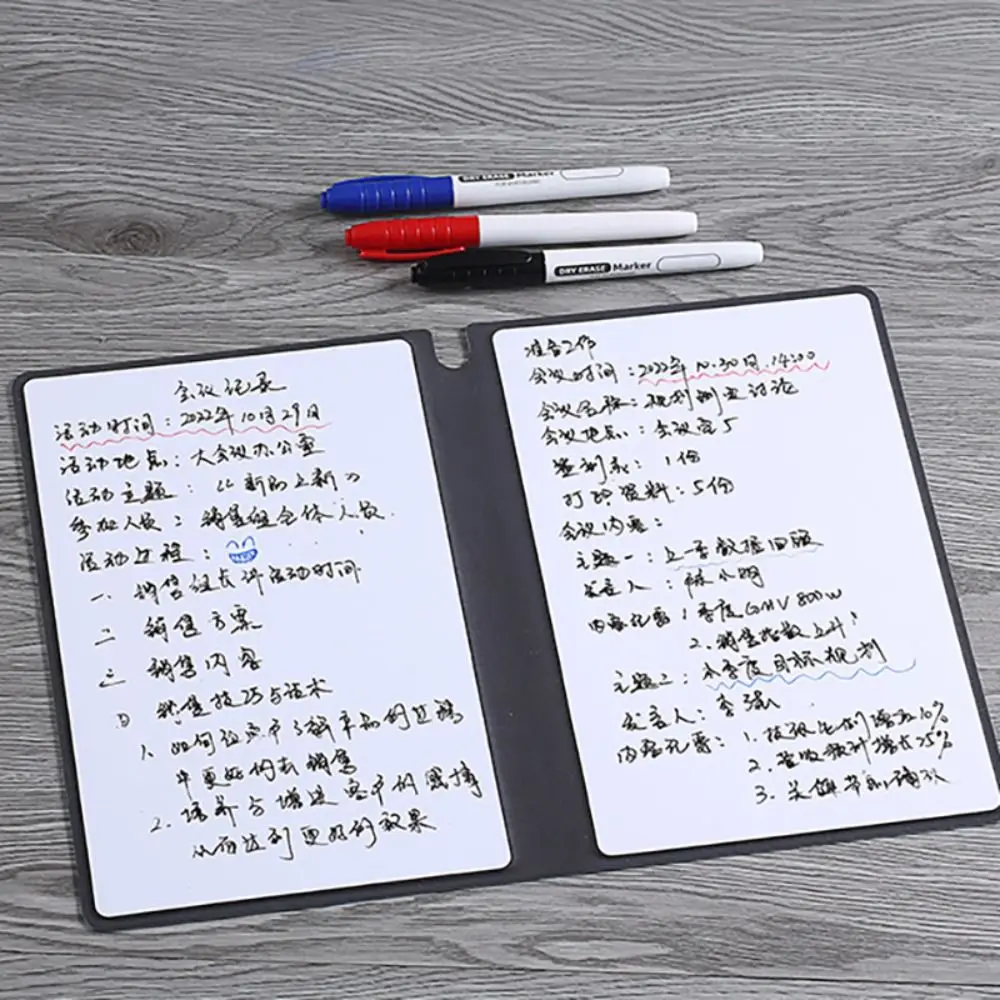 DRY ERASE Marker
DRY ERASE Marker
会议记录
活动时间：2022年10月29日
活动地点：大会议办公室
活动主题：“新品上新”
参加人员：销售组全体人员.
活动过程：
一、销售组长讲活动时间
二 销售方案
三 销售内容
四 销售技巧与话术
1. 如何让客户了解产品的过程
中更好的去销售
2. 培养与增进客户的感情
从而达到更好的效果
准备工作
会议时间：2022年10.30日.14:00
会议名称：规划制定讨论
会议地点：会议室5
签到表：1份
打印资料：5份
会议内容：
主题一：上一季数据回顾
发言人：陈小明
内容记要：1季度GMV 800w
2.销售指数上升？
主题二：本季度目标规划
发言人：李强
内容记要：1.投放比例增加10%
2.营收预计增长25%
3.关键节点确认